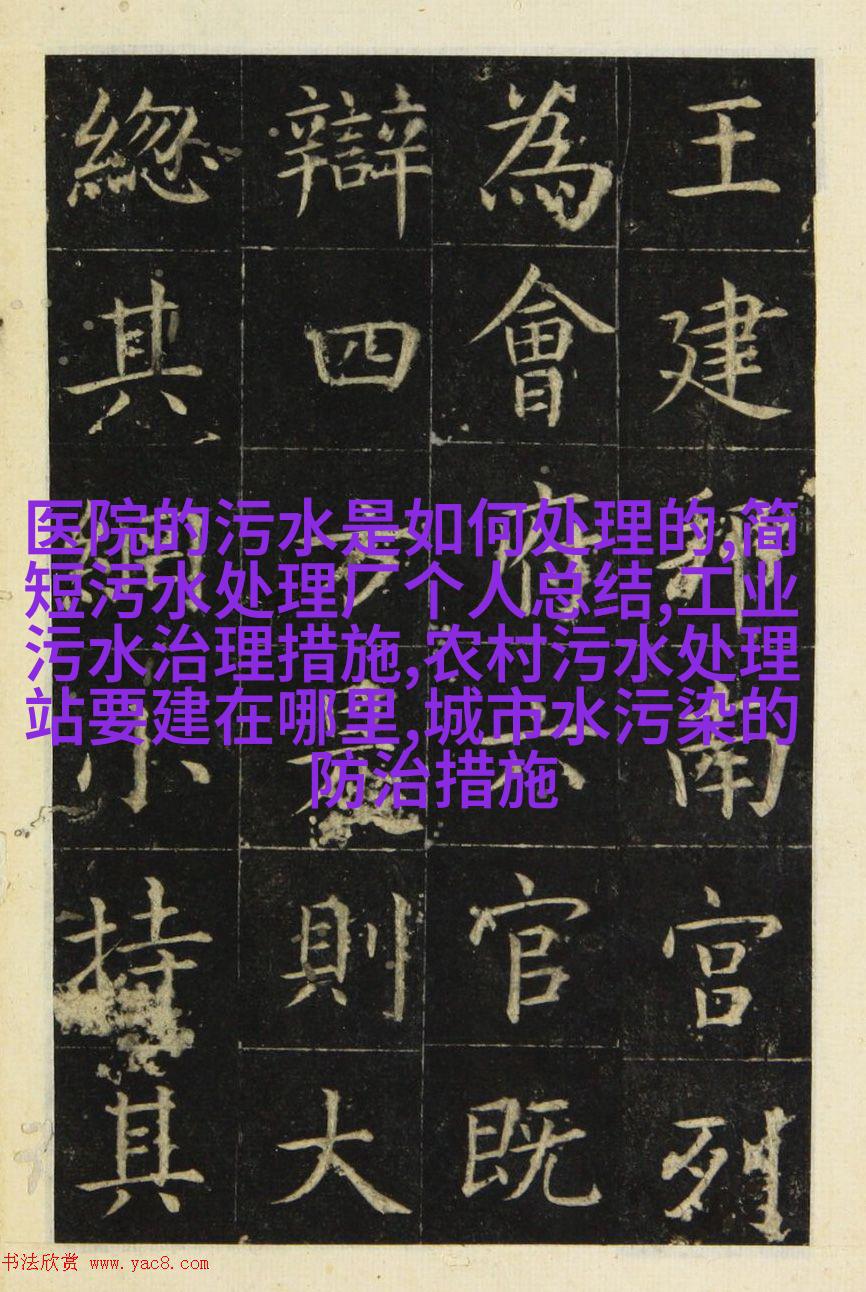 王建邦南宮列
為會府六官既
辯四方是則大
緫其綱小持其
医院的污水是如何处理的,简
短污水处理厂个人总结,工业
污水治理措施,农村污水处理
站要建在哪里,城市水污染的
防治措施
书法欣赏 www.yac8.com